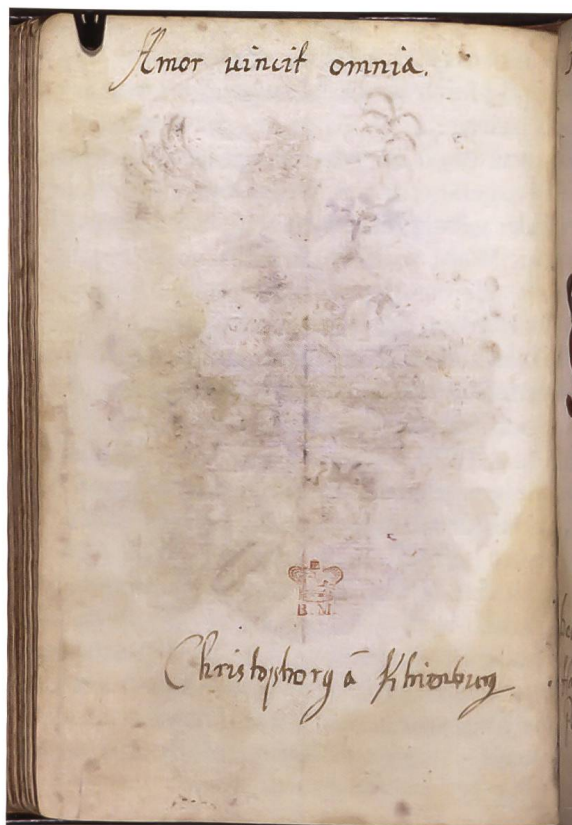 Amor vincit omnia.
B. M.
Christophorꝰ à Khienburg